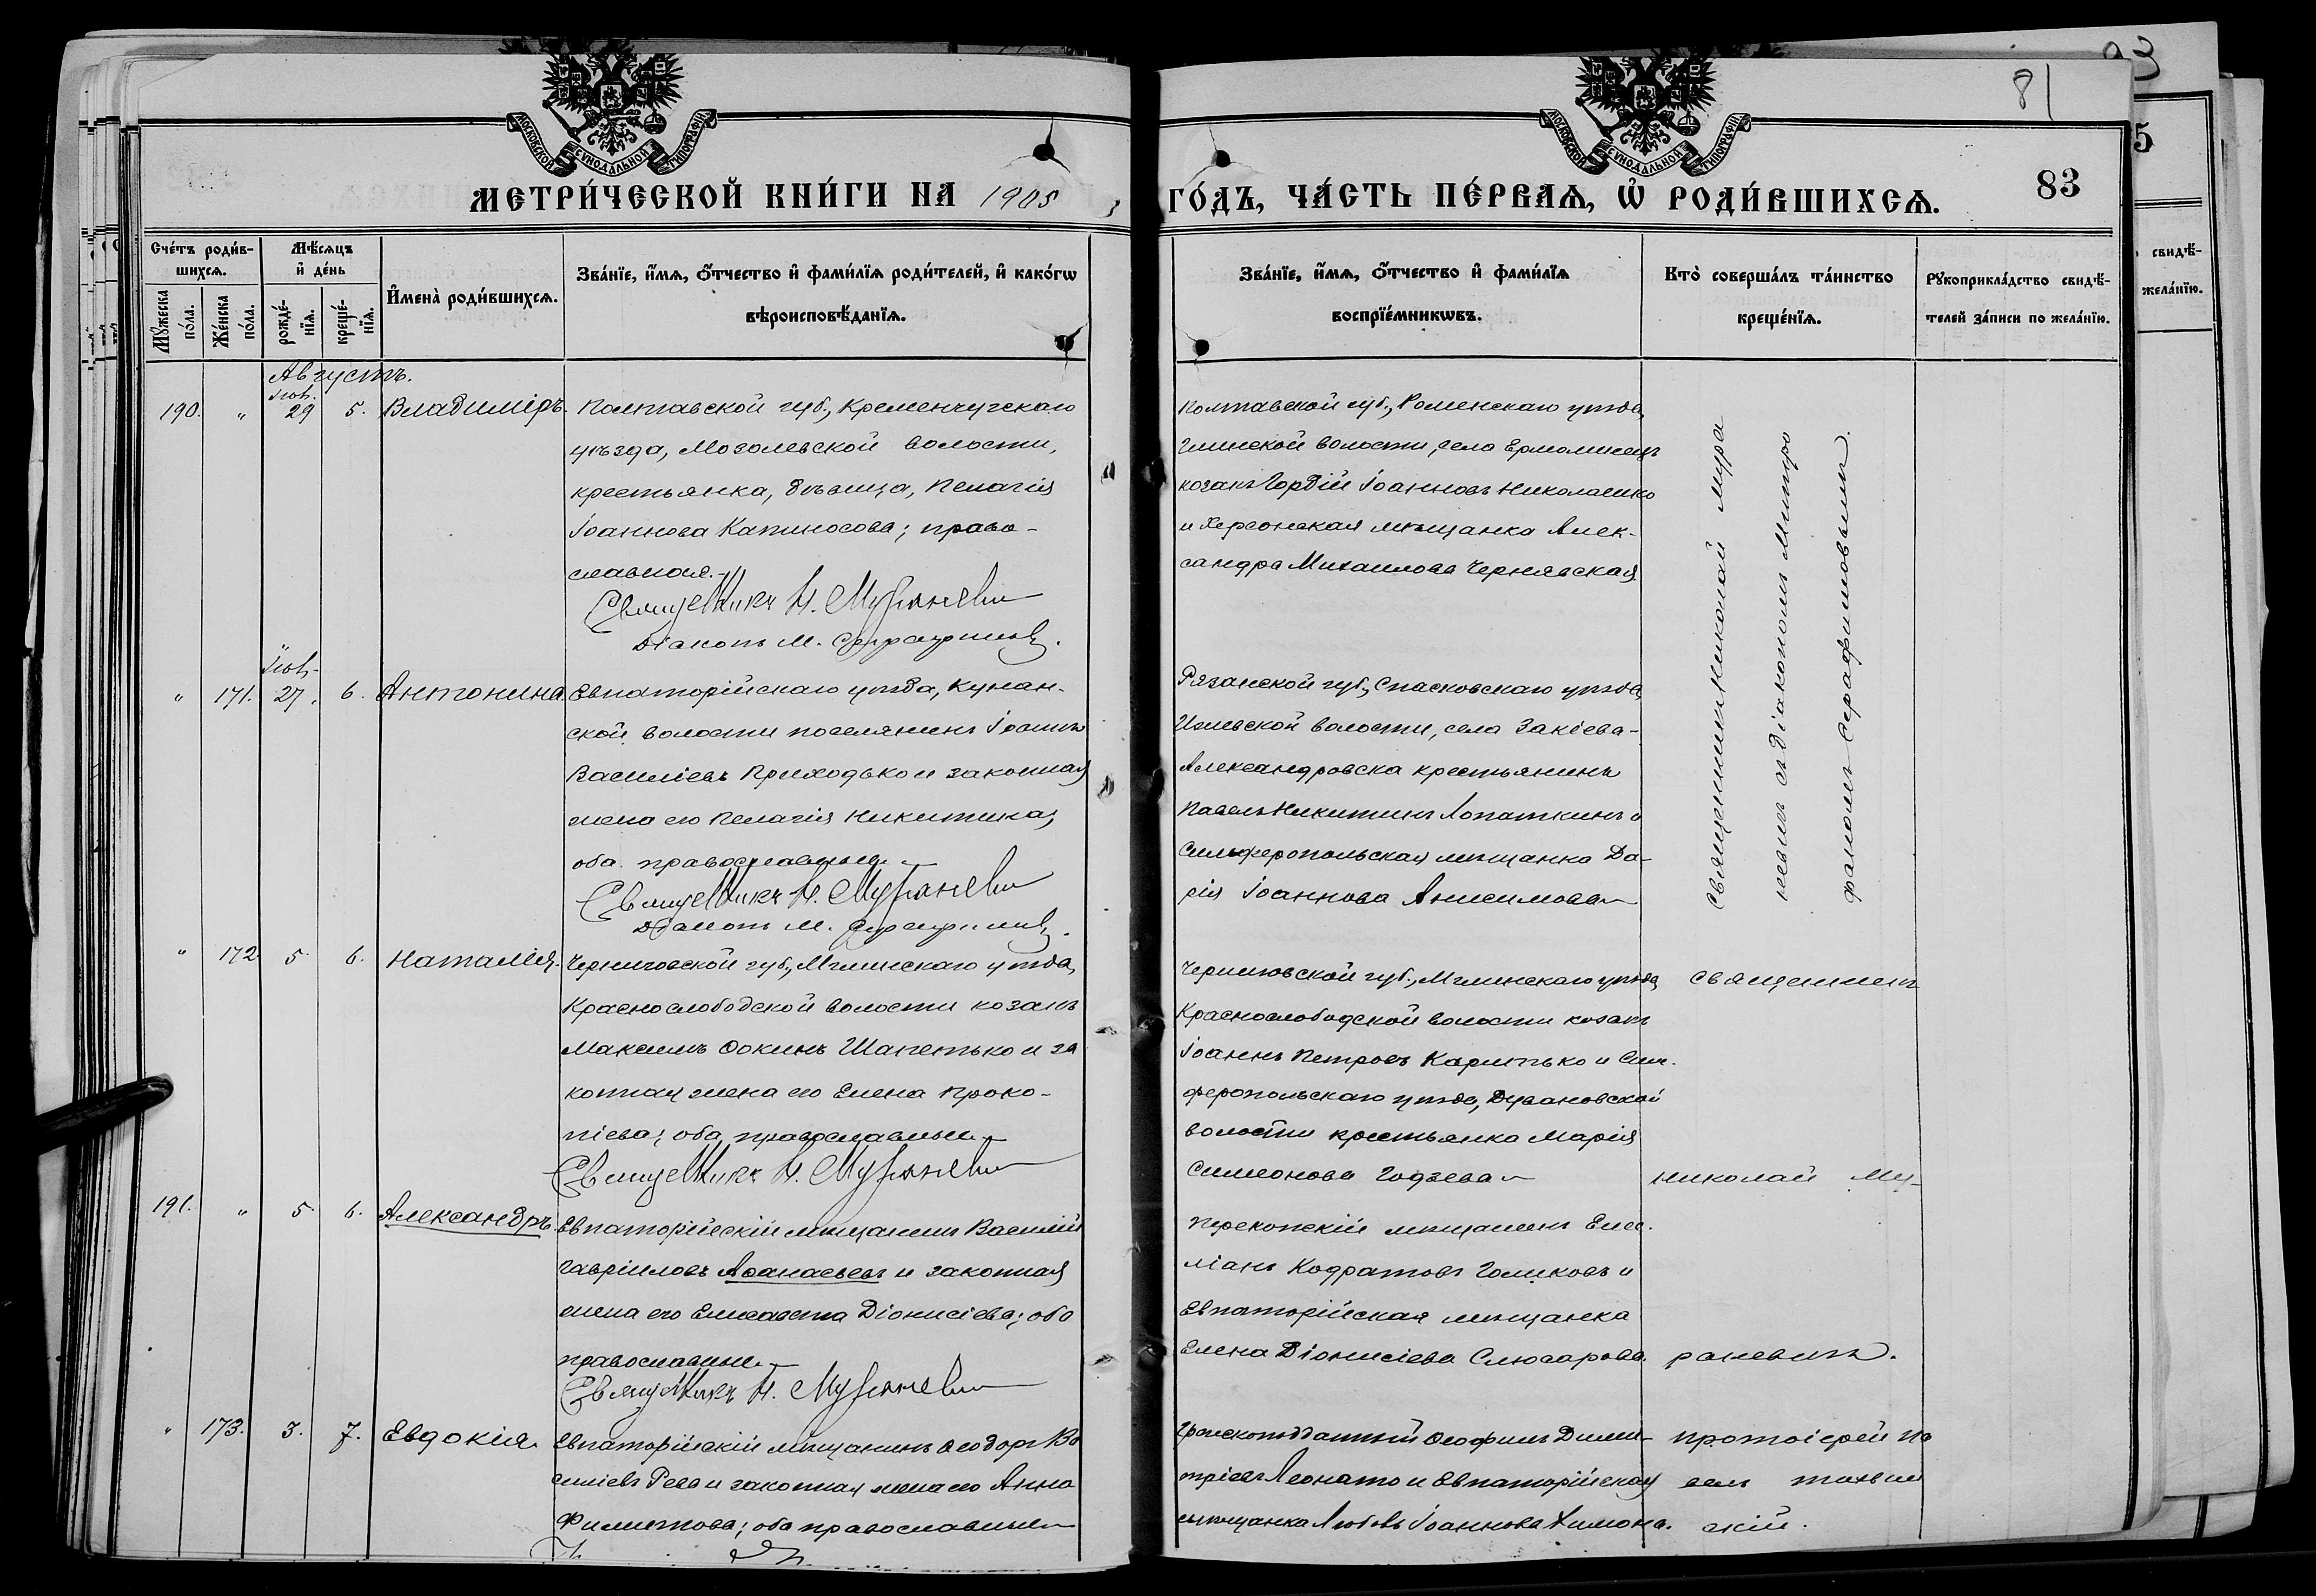 93
81
МОСКОВСКОЙ СѴНОДАЛЬНОЙ ТИПОГРАФІИ
МОСКОВСКОЙ СѴНОДАЛЬНОЙ ТИПОГРАФІИ
МЕТРИ́ЧЕСКОЙ КНИ́ГИ НА 1905
ГО́ДЪ, ЧА́СТЬ ПЕ́РВАѦ, Ѡ҆ РОДИ́ВШИХСѦ.
83
5
Сче́тъ роди́в-
шихсѧ.
Мѣ́сѧцъ
и҆ де́нь
Мꙋ́жеска
по́ла.
Же́нска
по́ла.
рожде́-
нїѧ.
креще́-
нїѧ.
И҆мена̀ роди́вшихсѧ.
Зва́нїе, и҆́мѧ, ѻ҆́тчество и҆ фамѝлїѧ роди́телей, и҆ како́гѡ
вѣроисповѣ́данїѧ.
Зва́нїе, и҆́мѧ, ѻ҆́тчество и҆ фами́лїѧ
воспрїе́мникѡвъ.
Кто̀ соверша́лъ та́инство
креще́нїѧ.
Рꙋкоприкла́дство свидѣ́-
телей за́писи по жела́нїю.
свидѣ́-
жела́нїю.
Августъ.
Іюл.
190. " 29 5. Владиміръ.
Полтавской губ., Кременчугскаго
уѣзда, Моголевской волости,
крестьянка, дѣвица, Пелагія
Іоаннова Капиносова; право-
славная.
Священникъ Н. Мураневич
Діаконъ М. Серафимов.
Полтавской губ., Роменскаго уѣзда,
Глинской волости, села Ермолинецъ
козакъ Гордій Іоанновъ Николаенко
и Херсонская мѣщанка Алек-
сандра Михаилова Чернявская
Священникъ Николай Мура
невичъ съ діакономъ Митро
фаномъ Серафимовымъ.
Іюл.
" 171. 27. 6. Антонина.
Евпаторійскаго уѣзда, Кунан-
ской волости поселянинъ Іоаннъ
Василіевъ Приходько и законная
жена его Пелагія Никитина;
оба православные
Священникъ Н. Мураневич
Діаконъ М. Серафимов.
Рязанской губ., Спасковскаго уѣзда,
Ижевской волости, села Закіева-
Александровска крестьянинъ
Павелъ Никитинъ Лопаткинъ и
Симферопольская мѣщанка Да-
рія Іоаннова Анисимова
" 172 5. 6. Наталія.
Черниговской губ., Мглинскаго уѣзда,
Краснослободской волости козакъ
Максимъ Фокинъ Шапетько и за
конная жена его Елена Проко-
піева; оба православные
Священникъ Н. Мураневич
Черниговской губ., Мглинскаго уѣзда,
Краснослободской волости козакъ
Іоаннъ Петровъ Карпѣтько и Сим-
феропольскаго уѣзда, Дувановской
волости крестьянка Марія
Симеонова Годзева
Священникъ
Николай Му-
раневичъ.
191. " 5. 6. Александръ.
Евпаторійскій мѣщанинъ Василій
Гавріиловъ Аѳанасьевъ и законная
жена его Елисавета Діонисіева; оба
православные
Священникъ Н. Мураневич
Перекопскій мѣщанинъ Еме-
ліанъ Кодратовъ Голиковъ и
Евпаторійская мѣщанка
Елена Діонисіева Слюсарова.
" 173. 3. 7. Евдокія.
Евпаторійскій мѣщанинъ Ѳеодоръ Ва
силіевъ Рева и законная жена его Анна
Филиппова; оба православные
Грекоподданный Ѳеофилъ Дими-
тріевъ Леонато и Евпаторійская
мѣщанка Любовь Іоаннова Химона.
протоіерей Па
велъ Тихвин
скій.